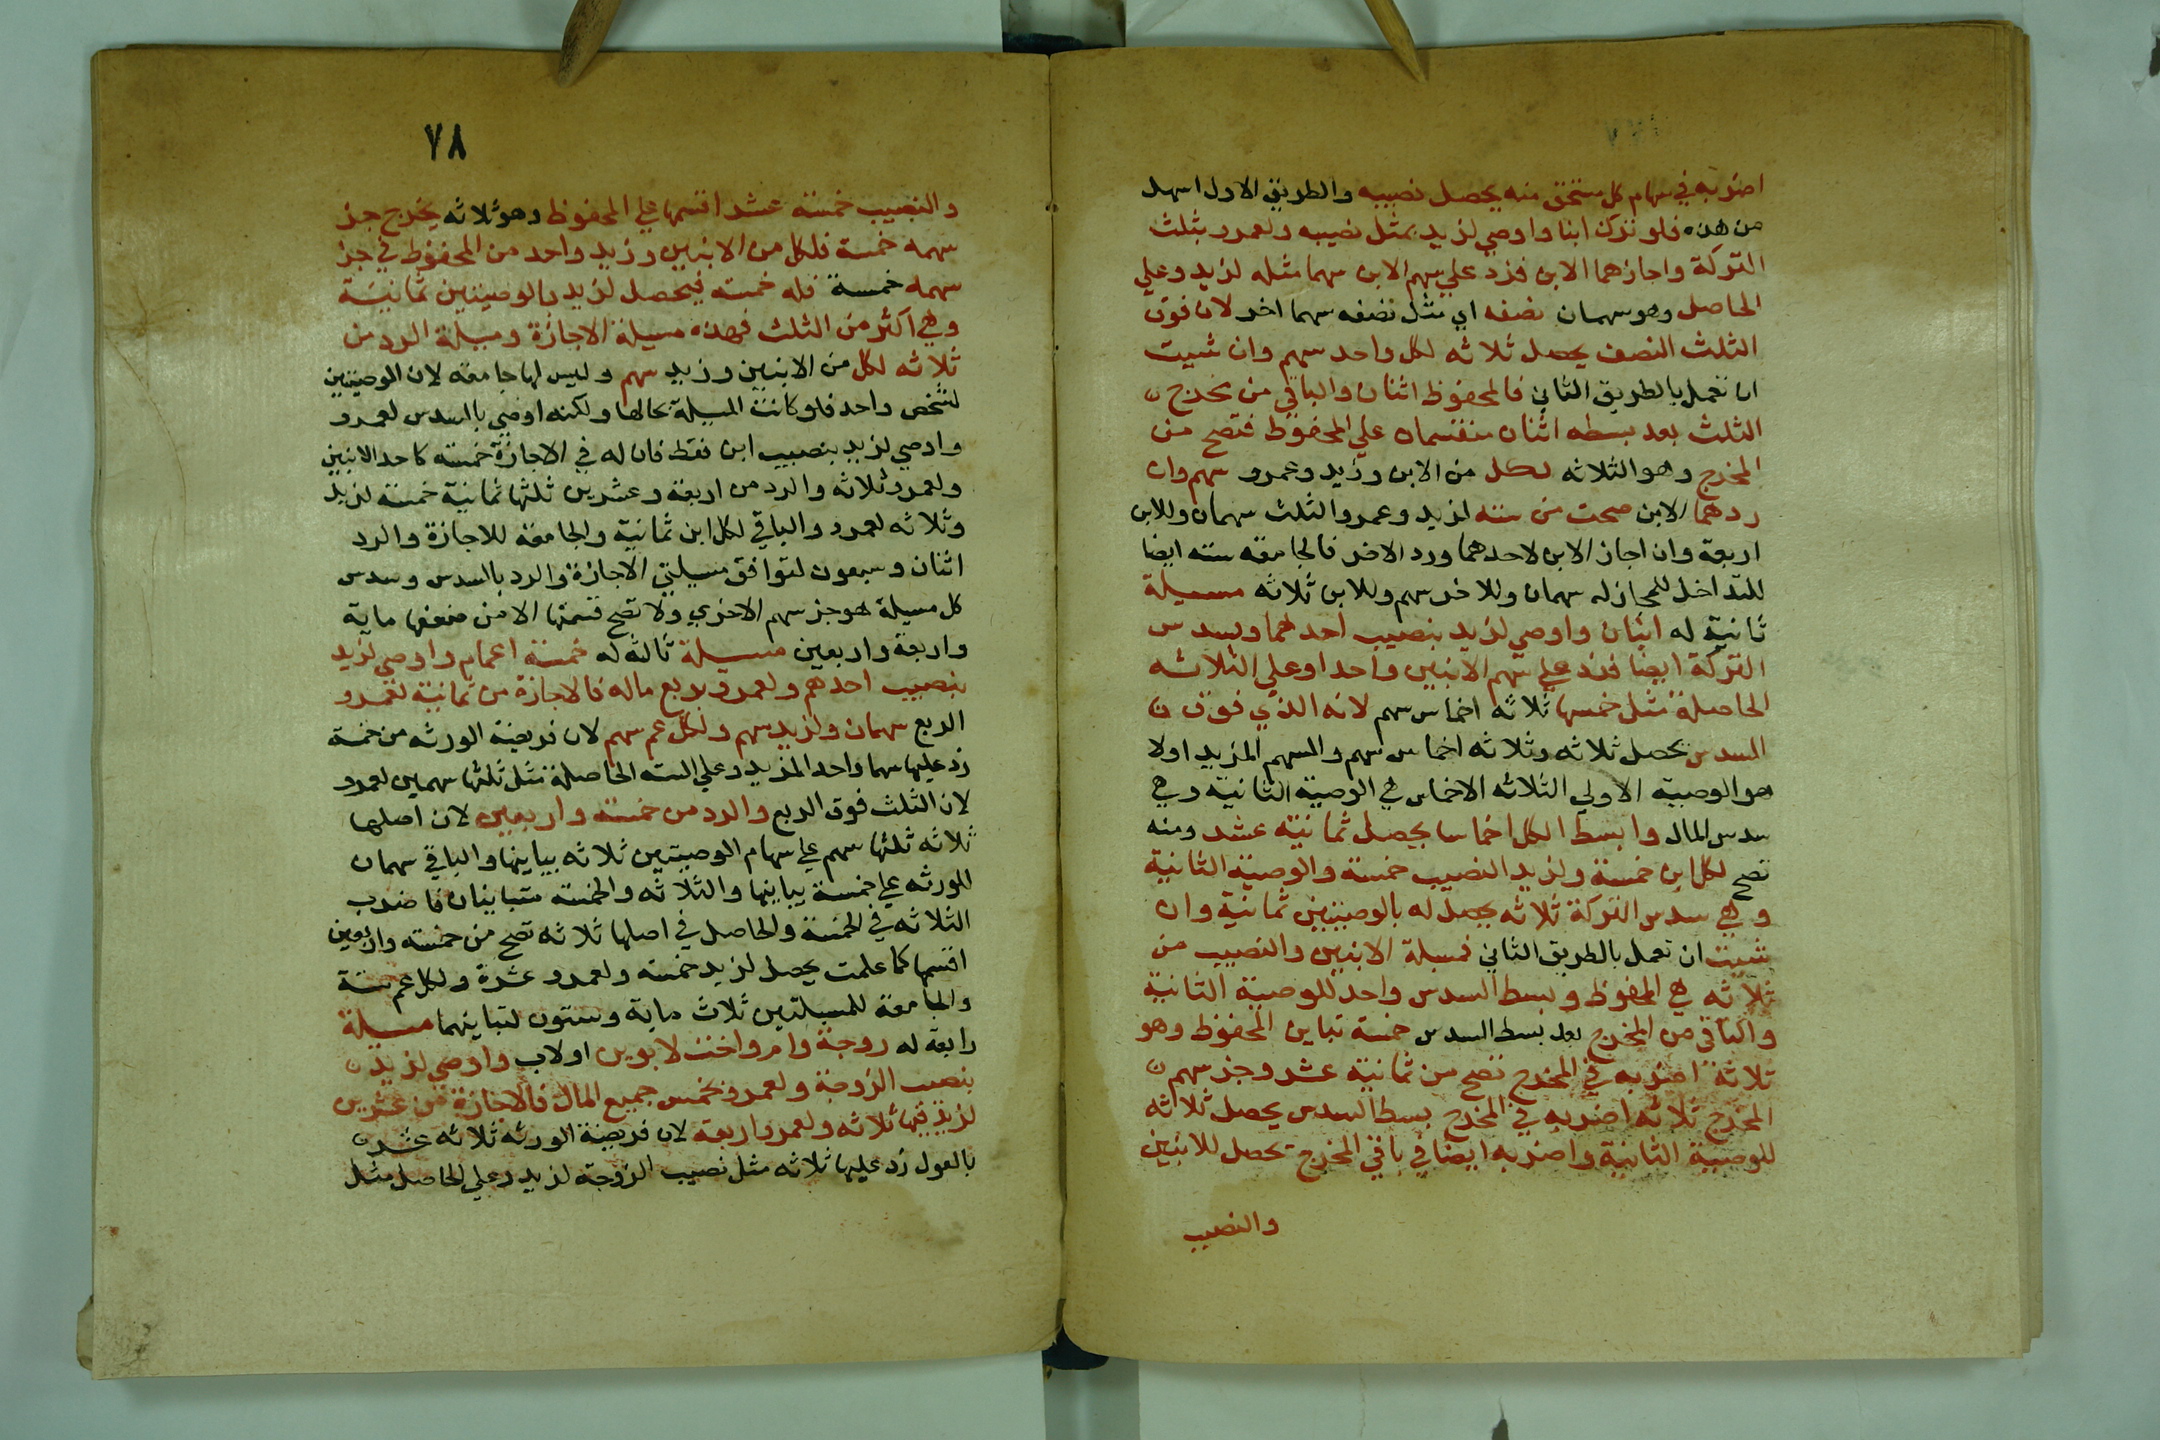 اضربه في سهام كل مستحق منه يحصل نصيبه والطريق الاول اسهل
من هذه فلو ترك ابنا واوصي لزيد بمثل نصيبه ولعمرو بثلث
التركة واجازهما الابن فزد علي سهم الابن سهما مثله لزيد وعلي
الحاصل وهو سهمان نصفه اي مثل نصفه سهما اخر لان فوق
الثلث النصف يحصل ثلاثه لكل واحد سهم وان شيت
ان تعمل بالطريق الثاني فالمحفوظ اثنان والباقي من مخرج
الثلث بعد بسطه اثنان منقسمان علي المحفوظ فتصح من
المخرج وهو الثلاثه لكل من الابن وزيد وعمرو سهم وان
ردهما الابن صحت من سته لزيد وعمرو الثلث سهمان وللابن
اربعة وان اجاز الابن لاحدهما ورد الاخر فالجامعه سته ايضا
للتداخل للمجاز له سهمان وللاخر سهم وللابن ثلاثه مسيلة
ثانية له ابنان واوصي لزيد بنصيب احدهما وبسدس
التركة ايضا فزد علي سهم الابنين واحدا وعلي الثلاثه
الحاصلة مثل خمسها ثلاثه اخماس سهم لانه الذي فوق
السدس يحصل ثلاثه وثلاثه اخماس سهم والسهم المزيد اولا
هو الوصية الاولي الثلاثه الاخماس هي الوصية الثانية وهي
سدس المال وابسط الكل اخماسا يحصل ثمانية عشر ومنه
تصح لكل ابن خمسة ولزيد النصيب خمسة والوصية الثانية
وهي سدس التركة ثلاثه يحصل له بالوصيتين ثمانية وان
شيت ان تعمل بالطريق الثاني فمسيلة الابنين والنصيب من
ثلاثه هي المحفوظ وبسط السدس واحد للوصية الثانية
والباقي من المخرج بعد بسط السدس خمسة تباين المحفوظ وهو
ثلاثة اضربه في المخرج تصح من ثمانية عشر وجز سهم
المخرج ثلاثه اضربه في المخرج بسط السدس يحصل ثلاثه
للوصية الثانية واضربه ايضا في باقي المخرج يحصل للابنين
والنصيب
٧٨
والنصيب خمسة عشر اقسمها علي المحفوظ وهو ثلاثه يخرج جز
سهمه خمسة فلكل من الابنين وزيد واحد من المحفوظ في جز
سهمه خمسة فله خمسه فيحصل لزيد بالوصيتين ثمانية
وهي اكثر من الثلث فهذه مسيلة الاجازة ومسيلة الرد من
ثلاثه لكل من الابنين وزيد سهم وليس لها جامعه لان الوصيتين
لشخص واحد فلو كانت المسيلة بحالها ولكنه اوصي بالسدس لعمرو
واوصي لزيد بنصيب ابن فقط فان له في الاجازة خمسه كاحد الابنين
ولعمرو ثلاثه والرد من اربعة وعشرين ثلثها ثمانية خمسة لزيد
وثلاثه لعمرو والباقي لكل ابن ثمانية والجامعة للاجازة والرد
اثنان وسبعون لتوافق مسيلتي الاجازة والرد بالسدس وسدس
كل مسيلة هو جز سهم الاخري ولا تصح قسمتها الا من ضعفها ماية
واربعة واربعين مسيلة ثالثه له خمسة اعمام واوصي لزيد
بنصيب احدهم ولعمرو بربع ماله فالاجازة من ثمانية لعمرو
الربع سهمان ولزيد سهم ولكل عم سهم لان فريضة الورثه من خمسة
زد عليها سهما واحدا لزيد وعلي السته الحاصلة مثل ثلثها سهمين لعمرو
لان الثلث فوق الربع والرد من خمسه واربعين لان اصلها
ثلاثه ثلثها سهم علي سهام الوصيتين ثلاثه يباينها والباقي سهمان
للورثه علي خمسة يباينها والثلاثه والخمسه متباينان فاضرب
الثلاثه في الخمسة والحاصل في اصلها ثلاثه تصح من خمسه واربعين
اقسمها كما علمت يحصل لزيد خمسه ولعمرو عشرة ولكل عم ستة
والجامعة للمسيلتين ثلاث ماية وستون لتباينهما مسيلة
رابعة له زوجة وام واخت لابوين او لاب واوصي لزيد
بنصيب الزوجة ولعمرو بخمس جميع المال فالاجازة من عشرين
لزيد فيها ثلاثه ولعمرو اربعة لان فريضة الورثه ثلاثه عشر
بالعول زد عليها ثلاثه مثل نصيب الزوجة لزيد وعلي الحاصل مثل